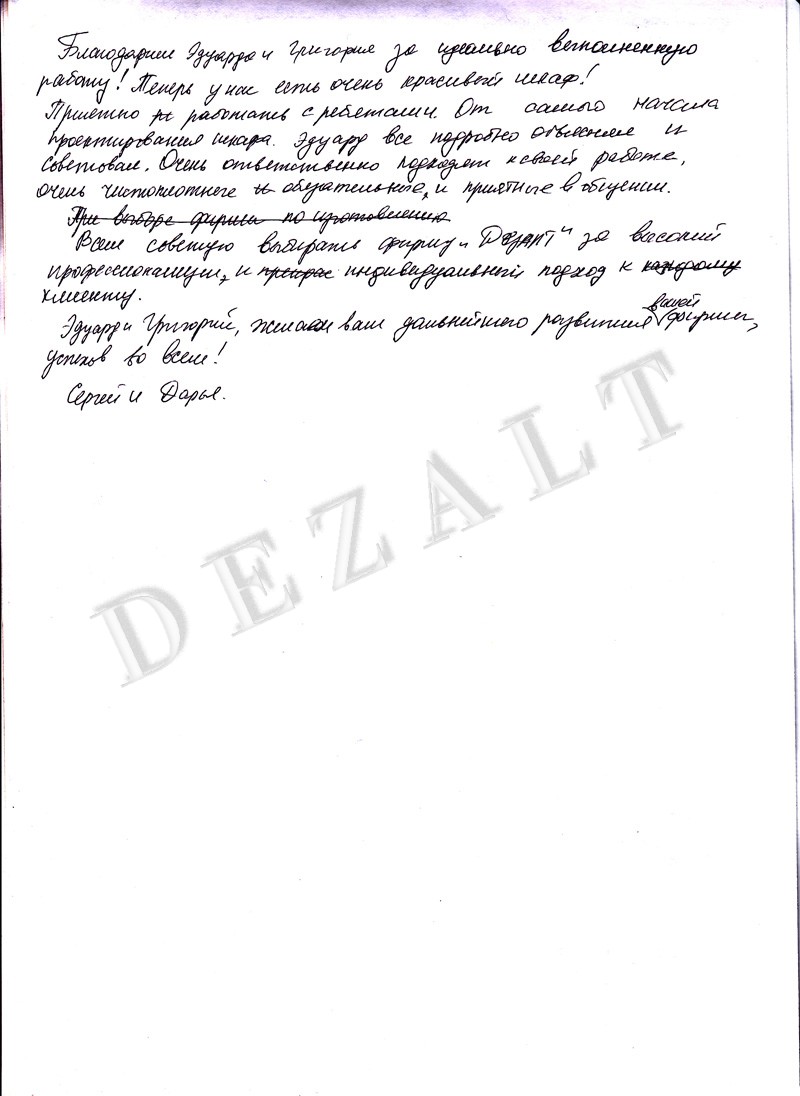 Благодарим Эдуарда и Григория за идеально выполненную
работу! Теперь у нас есть очень красивый шкаф!
Приятно работать с ребятами. От самого начала
проектирования шкафа. Эдуард все подробно объяснял и
советовал. Очень ответственно подходят к своей работе,
очень чистоплотные обязательные, и приятные в общении.
При выборе фирмы по изготовлению
Всем советую выбирать фирму "Дезалт" за высокий
профессионализм, и индивидуальный подход к каждому
клиенту.
Эдуард и Григорий, желаем вам дальнейшего развития вашей фирмы,
успехов во всем!
Сергей и Дарья.
DEZALT